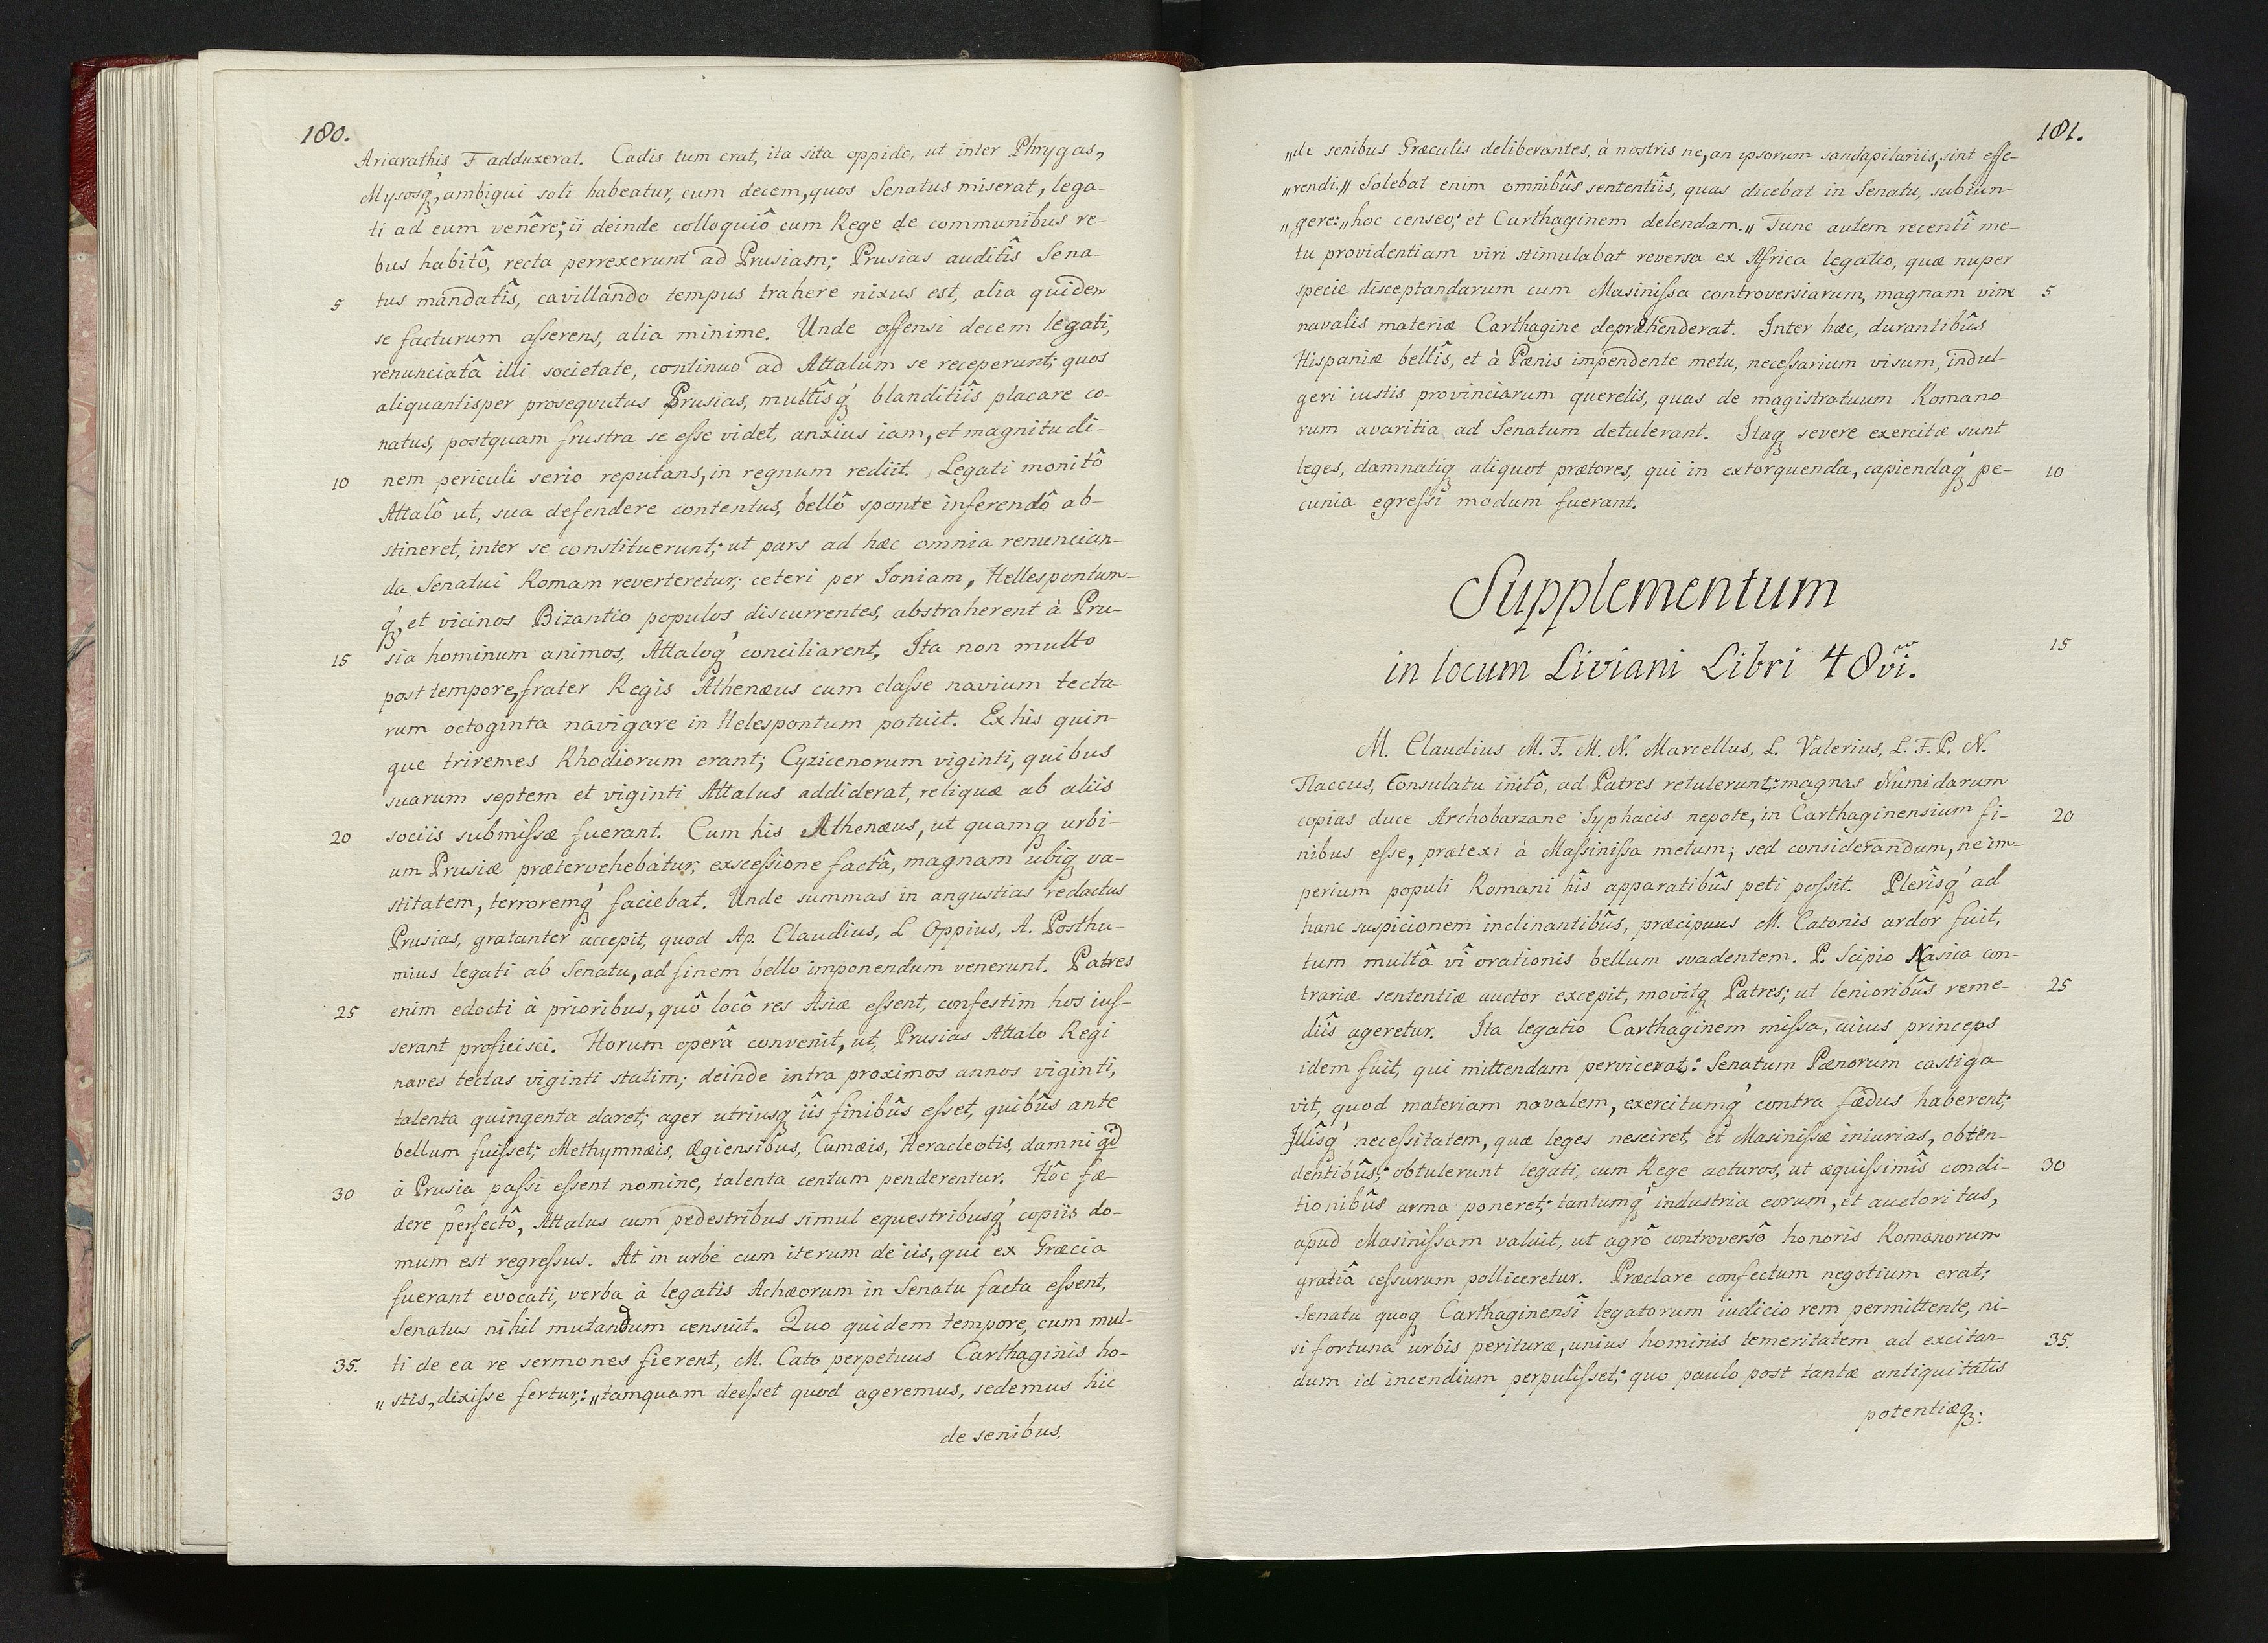 180.
Ariarathis F adduxerat. Cadis tum erat, ita sita oppido, ut inter Phrygas,
Mysosq́, ambigui soli habeatur, cum decem, quos Senatus miserat, lega-
ti ad eum venêre; ii deinde colloquiô cum Rege de communibus re-
bus habitô, recta perrexerunt ad Prusiam; Prusias auditîs Sena-
5 tus mandatîs, cavillando tempus trahere nixus est, alia quidem
se facturum aſserens, alia minime. Unde offensi decem legati,
renunciatâ illi societate, continuo ad Attalum se receperunt; quos
aliquantisper prosequutus Prusias, multîsq́ blanditiîs placare co-
natus, postquam frustra se eſse videt, anxius iam, et magnitudi-
10 nem periculi serio reputans, in regnum rediit. Legati monitô
Attalô ut, sua defendere contentus, bellô sponte inferendô ab-
stineret, inter se constituerunt; ut pars ad hæc omnia renuncian-
da Senatui Romam reverteretur; ceteri per Ioniam, Hellespontum-
q́, et vicinos Bizantio populos discurrentes, abstraherent à Pru-
15 sia hominum animos, Attaloq́ conciliarent. Ita non multo
post tempore, frater Regis Athenæus cum claſse navium tecta-
rum octoginta navigare in Helespontum potuit. Ex his quin-
que triremes Rhodiorum erant; Cyzicenorum viginti, quibus
suarum septem et viginti Attalus addiderat, reliquæ ab aliis
20 sociis submiſsæ fuerant. Cum his Athenæus, ut quamq urbi-
um Prusiæ prætervehebatur, exsceſsione factâ, magnam ubiq va-
stitatem, terroremq́ faciebat. Unde summas in angustias redactus
Prusias, gratanter accepit, quod Ap. Claudius, L Oppius, A. Posthu-
mius legati ab Senatu, ad finem bello imponendum venerunt. Patres
25 enim edocti à prioribus, quô locô res Asiæ eſsent, confestim hos iuſ-
serant proficisci. Horum operâ convenit, ut, Prusias Attalo Regi
naves tectas viginti statim; deinde intra proximos annos viginti,
talenta quingenta daret; ager utriusq iîs finibûs eſset, quibûs ante
bellum fuiſset; Methymnæis, Ægiensibus, Cumæis, Heracleotis, damni qd
30 à Prusia paſsi eſsent nomine, talenta centum penderentur. Hôc fæ-
dere perfectô, Attalus cum pedestribus simul equestribusq́ copiis do-
mum est regreſsus. At in urbe cum iterum de iis, qui ex Græcia
fuerant evocati, verba à legatis Achæorum in Senatu facta eſsent,
Senatus nihil mutandum censuit. Quo quidem tempore, cum mul-
35. ti de ea re sermones fierent, M. Cato perpetuus Carthaginis ho-
„ stis, dixiſse fertur: „tamquam deeſset quod ageremus, sedemus hic
de senibus.
181.
„de senibus Græculis deliberantes, à nostris ne, an ipsorum sandapilariis, sint effe-
„rendi.„ Solebat enim omnibûs sententiîs, quas dicebat in Senatu, subiun-
„gere: „hoc censeo; et Carthaginem delendam.„ Tunc autem recentî me-
tu providentiam viri stimulabat reversa ex Africa legatio, quæ nuper
5 specie disceptandarum cum Masiniſsa controversiarum, magnam vim
navalis materiæ Carthagine depræhenderat. Inter hæc, durantibûs
Hispaniæ bellîs, et à Pænis impendente metu, neceſsarium visum, indul
geri iustis provinciarum querelis, quas de magistratuum Romano-
rum avaritia ad Senatum detulerant. Itaq severe exercitæ sunt
10 leges, damnatiq aliquot prætores, qui in extorquenda, capiendaq́ pe-
cunia egreſsi modum fuerant.
Supplementum
15 in locum Liviani Libri 48vi.
M. Claudius M. F. M. N. Marcellus, L. Valerius, L. F. P. N.
Flaccus, Consulatu initô, ad Patres retulerunt: magnas Numidarum
20 copias duce Archobarzane Syphacis nepote, in Carthaginensium fi-
nibus eſse, prætexi à Maſsiniſsa metum; sed considerandum, ne im-
perium populi Romani hîs apparatibûs peti poſsit. Plerîsq́ ad
hanc suspicionem inclinantibûs, præcipuus M. Catonis ardor fuit,
tum multâ vî orationis bellum svadentem. P. Scipio Nasica con-
25 trariæ sententiæ auctor excepit, movitq Patres; ut lenioribûs reme-
diîs ageretur. Ita legatio Carthaginem miſsa, cuius princeps
idem fuit, qui mittendam pervicerat: Senatum Pænorum castiga-
vit, quod materiam navalem, exercitumq́ contra fædus haberent;
Illîsq́ neceſsitatem, quæ leges nesciret, et Masiniſsæ iniurias, obten-
30 dentibûs; obtulerunt legati, cum Rege acturos, ut æquiſsimîs condi-
tionibûs arma poneret; tantumq́ industria eorum, et auctoritas,
apud Masiniſsam valuit, ut agrô controversô honoris Romanorum
gratiâ ceſsurum polliceretur. Præclare confectum negotium erat;
Senatu quoq Carthaginensî legatorum iudicio rem permittente, ni-
35. si fortuna urbis perituræ, unius hominis temeritatem ad excitan-
dum id incendium perpuliſset; quo paulo post tantæ antiquitatis
potentiæq: